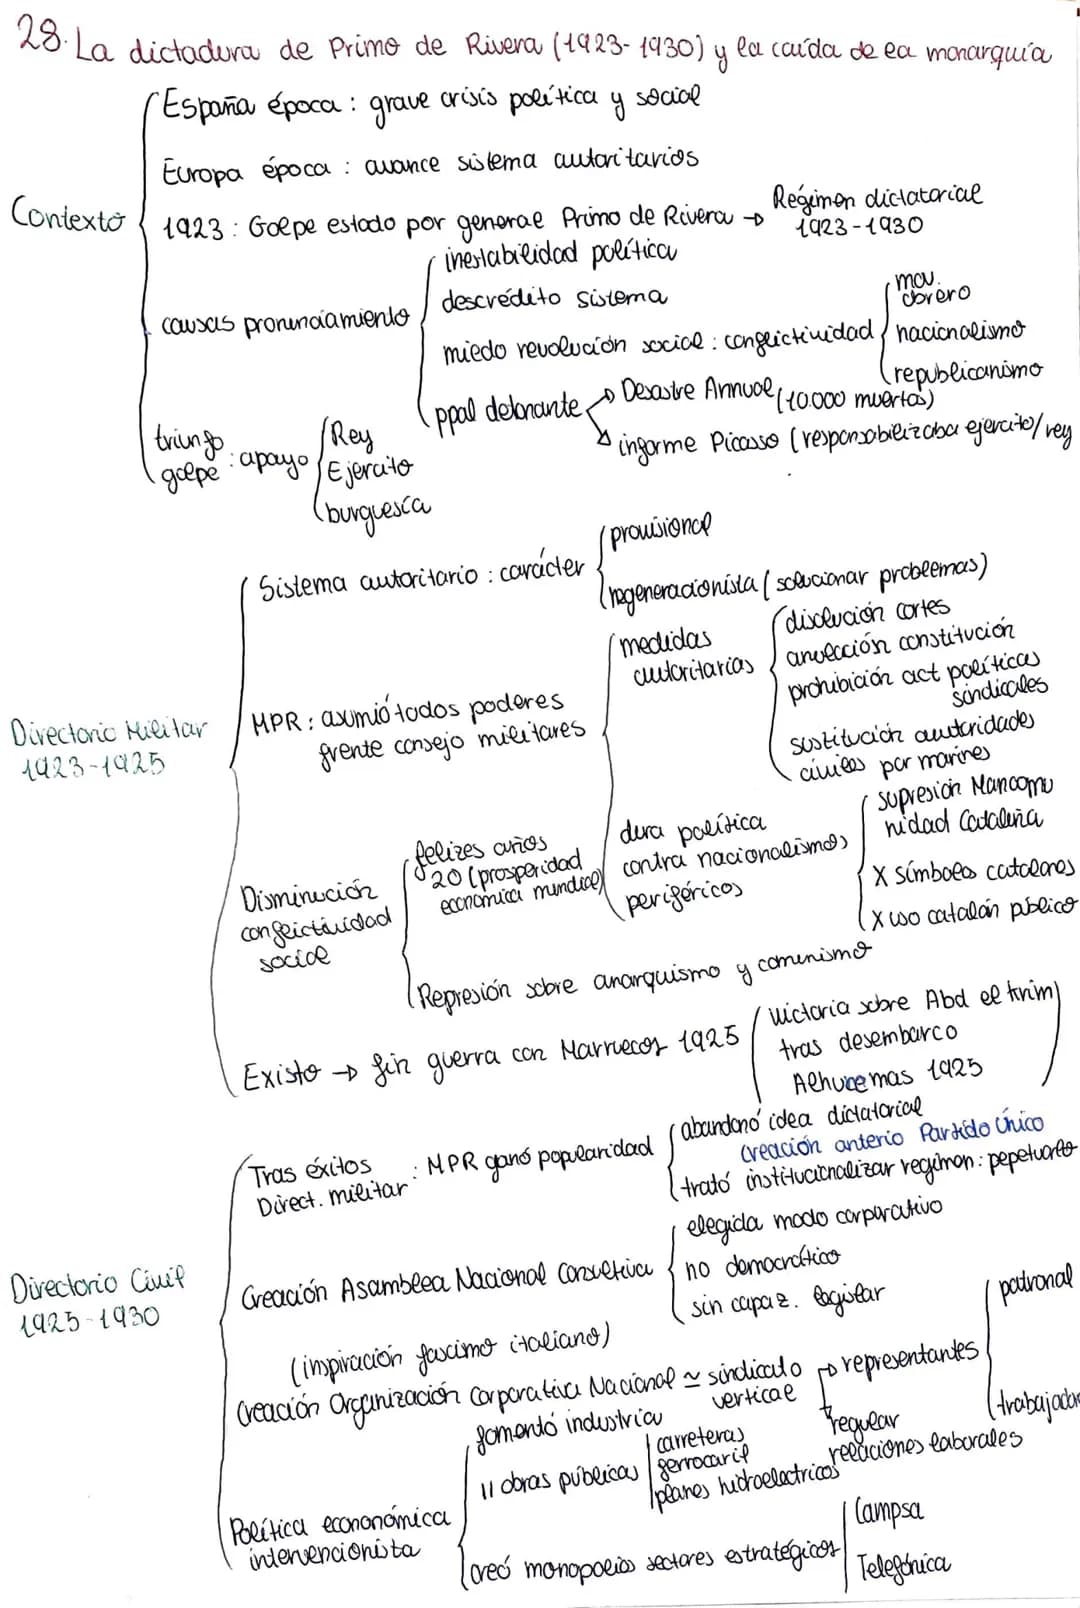 28. La dictadura de Primo de Rivera (1923-1930) y la caída de la monarquía
España época : grave crisis política y social
Europa época : avance sistema autoritarios
Contexto
1923 : Golpe estado por general Primo de Rivera → Régimen dictatorial 1923-1930
causas pronunciamiento
inestabilidad política
descrédito sistema
miedo revolución social : conflictividad
mov. obrero
nacionalismo
republicanismo
ppal detonante
Desastre Annual (10.000 muertos)
informe Picasso (responsabilizaba ejercito/rey
triunfo golpe : apoyo
Rey
Ejercito
burguesía
Directorio Militar
1923-1925
Sistema autoritario : carácter
provisional
regeneracionista (solucionar problemas)
MPR : asumió todos poderes
frente consejo militares
medidas autoritarias
disolución cortes
anulación constitución
prohibición act políticas
sindicales
sustitución autoridades
civiles por marines
dura política
contra nacionalismos
periféricos
supresión Mancomu
nidad Cataluña
X símbolos catalanes
X uso catalán público
Disminución
conflictividad
social
felizes años
20 (prosperidad
económica mundial)
Represión sobre anarquismo y comunismo
Existo → fin guerra con Marruecos 1925
victoria sobre Abd el krim
tras desembarco
Alhucemas 1925
Directorio Civil
1925-1930
Tras éxitos
Direct. militar
: MPR ganó popularidad
abandonó idea dictatorial
creación anterio Partido Único
trató institucionalizar regimen : pepetuarlo
Creación Asamblea Nacional Consultiva
elegida modo corporativo
no democrático
sin capaz. legislar
(inspiración fascimo italiano)
Creación Organización Corporativa Nacional ≃ sindicato vertical
representantes
patronal
trabajador
regular
relaciones laborales
Política econonómica
intervencionista
fomentó industria
11 obras públicas
carreteras
ferrocaril
planes hidroelectricos
creó monopolios sectores estratégicos
Campsa
Telefónica